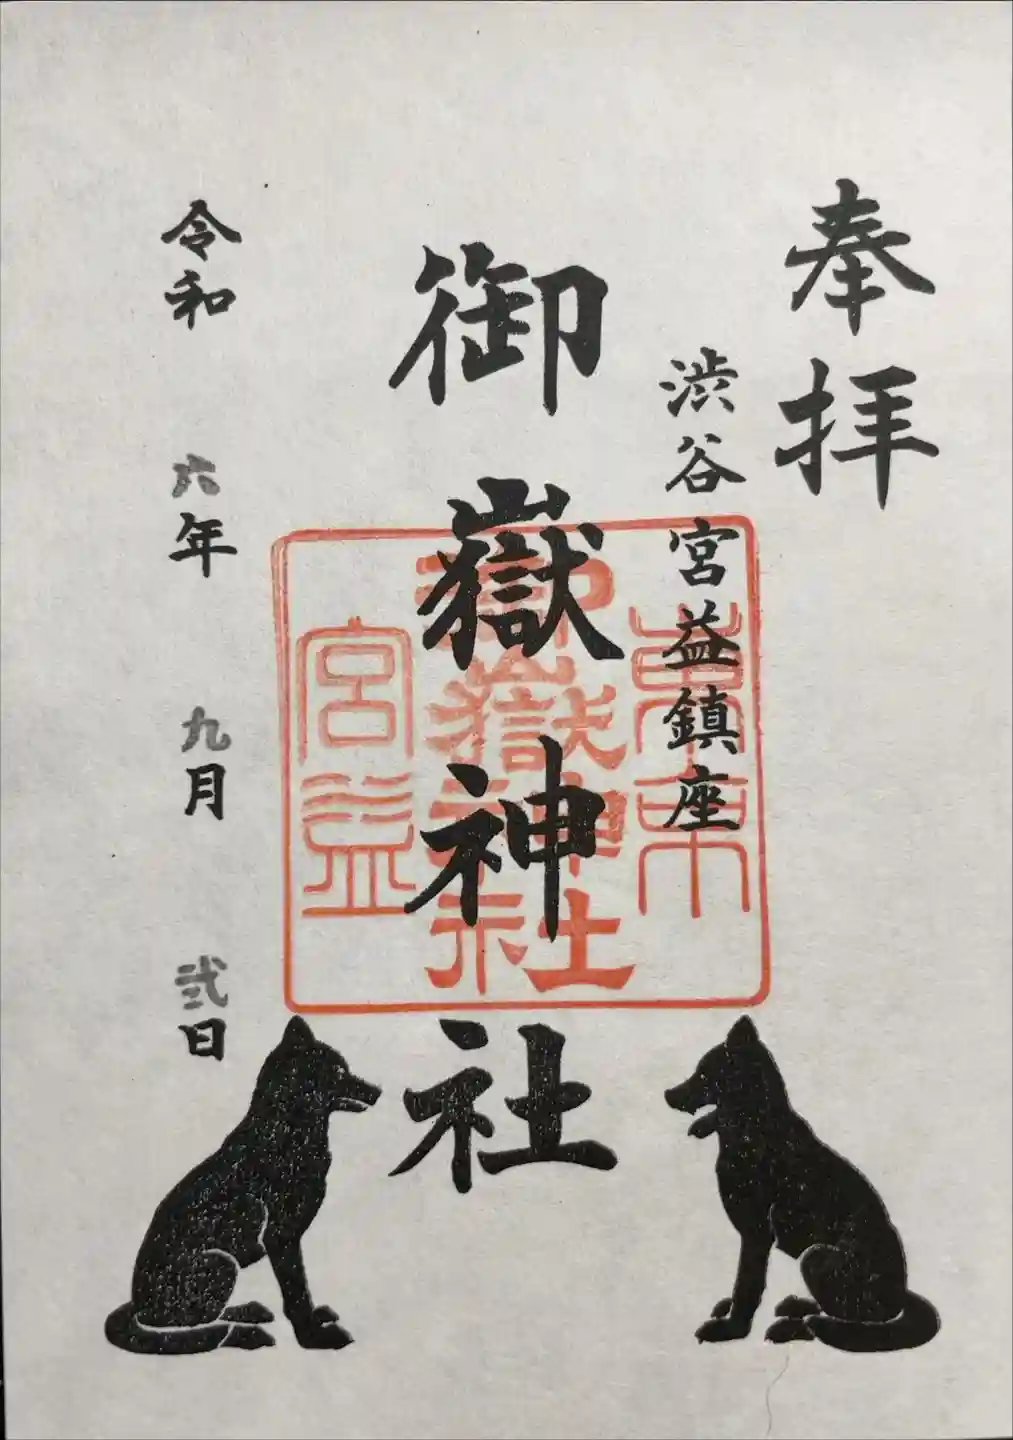 奉拝
渋谷宮益鎮座
御嶽神社
東京
御嶽神社
宮益
令和六年九月弐日